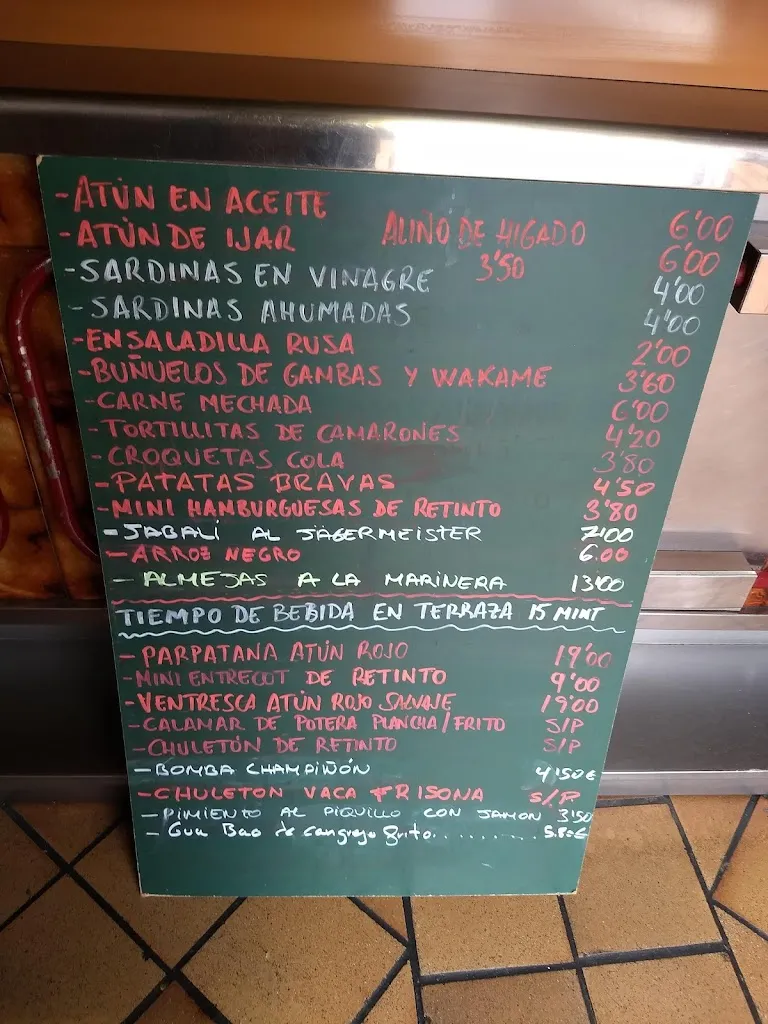 - ATÚN EN ACEITE 6'00
- ATÚN DE IJAR 6'00
ALIÑO DE HIGADO
3'50
- SARDINAS EN VINAGRE 4'00
- SARDINAS AHUMADAS 4'00
- ENSALADILLA RUSA 2'00
- BUÑUELOS DE GAMBAS Y WAKAME 3'60
- CARNE MECHADA 6'00
- TORTILLITAS DE CAMARONES 4'20
- CROQUETAS COLA 3'80
- PATATAS BRAVAS 4'50
- MINI HAMBURGUESAS DE RETINTO 3'80
- JABALÍ AL JÄGERMEISTER 7'00
- ARROZ NEGRO 6.00
- ALMEJAS A LA MARINERA 13'00
TIEMPO DE BEBIDA EN TERRAZA 15 MINT
- PARPATANA ATÚN ROJO 19'00
- MINI ENTRECOT DE RETINTO 9'00
- VENTRESCA ATÚN ROJO SALVAJE 19'00
- CALAMAR DE POTERA PLANCHA/FRITO S/P
- CHULETÓN DE RETINTO S/P
- BOMBA CHAMPIÑÓN 4,50€
- CHULETON VACA FRISONA S/P
- PIMIENTO AL PIQUILLO CON JAMON 3'50
- Gua Bao de cangrejo frito.........